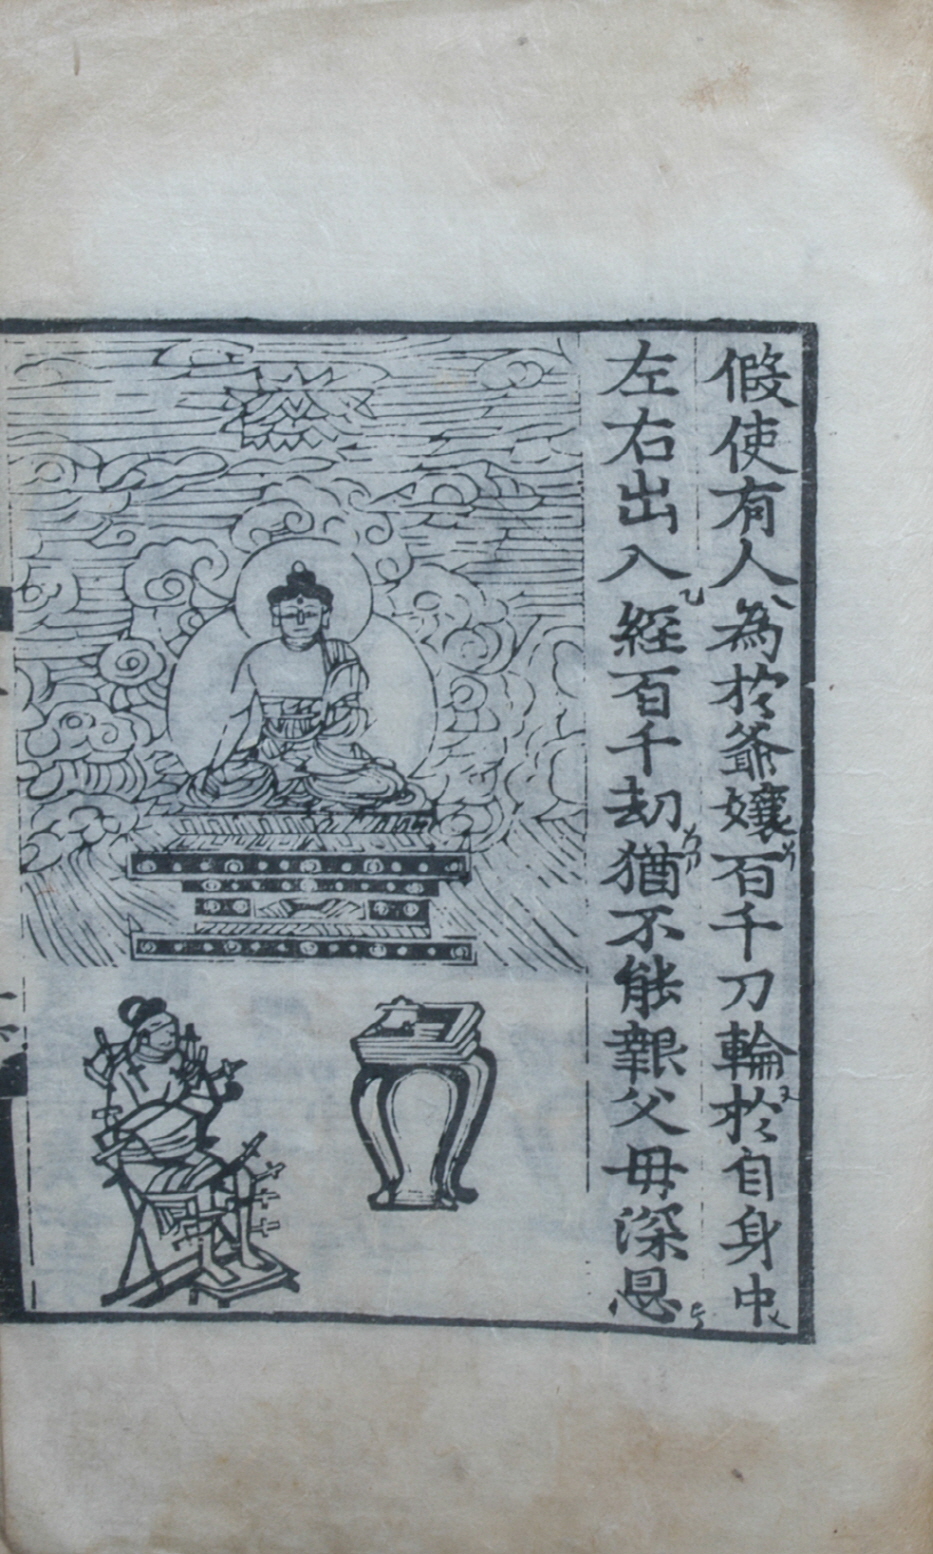 假使有人為於爺孃百千刀輪於自身中
左右出入經百千劫猶不能報父母深恩